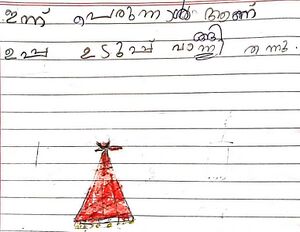 ഇന്ന് പെരുന്നാൾ ആണ്
ഉപ്പ ഉടുപ്പ് വാങ്ങി തന്നു.